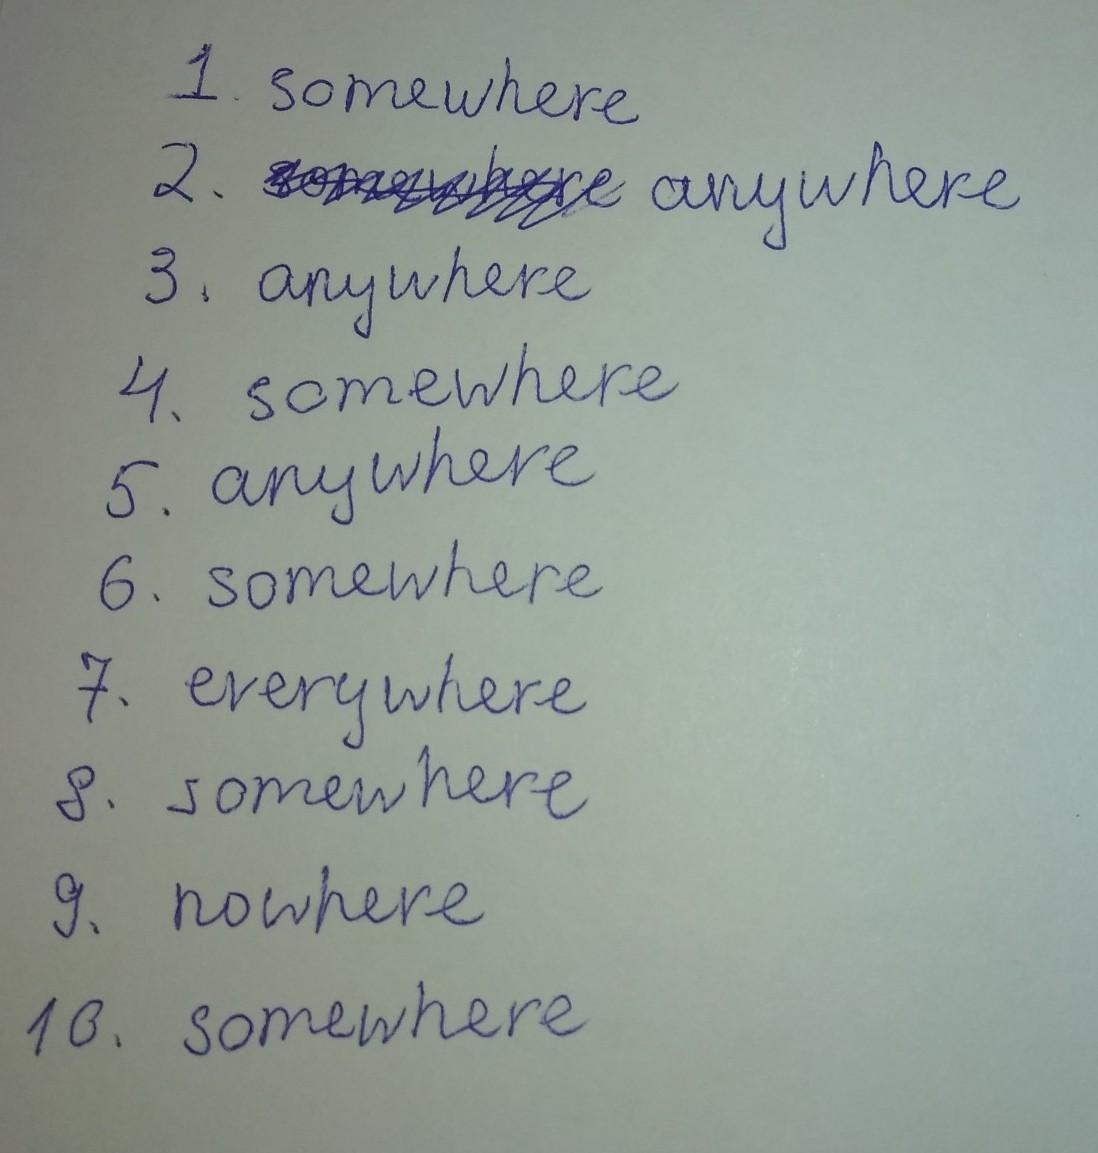 1. somewhere
2. somewhere anywhere
3. anywhere
4. somewhere
5. anywhere
6. somewhere
7. everywhere
8. somewhere
9. nowhere
10. somewhere